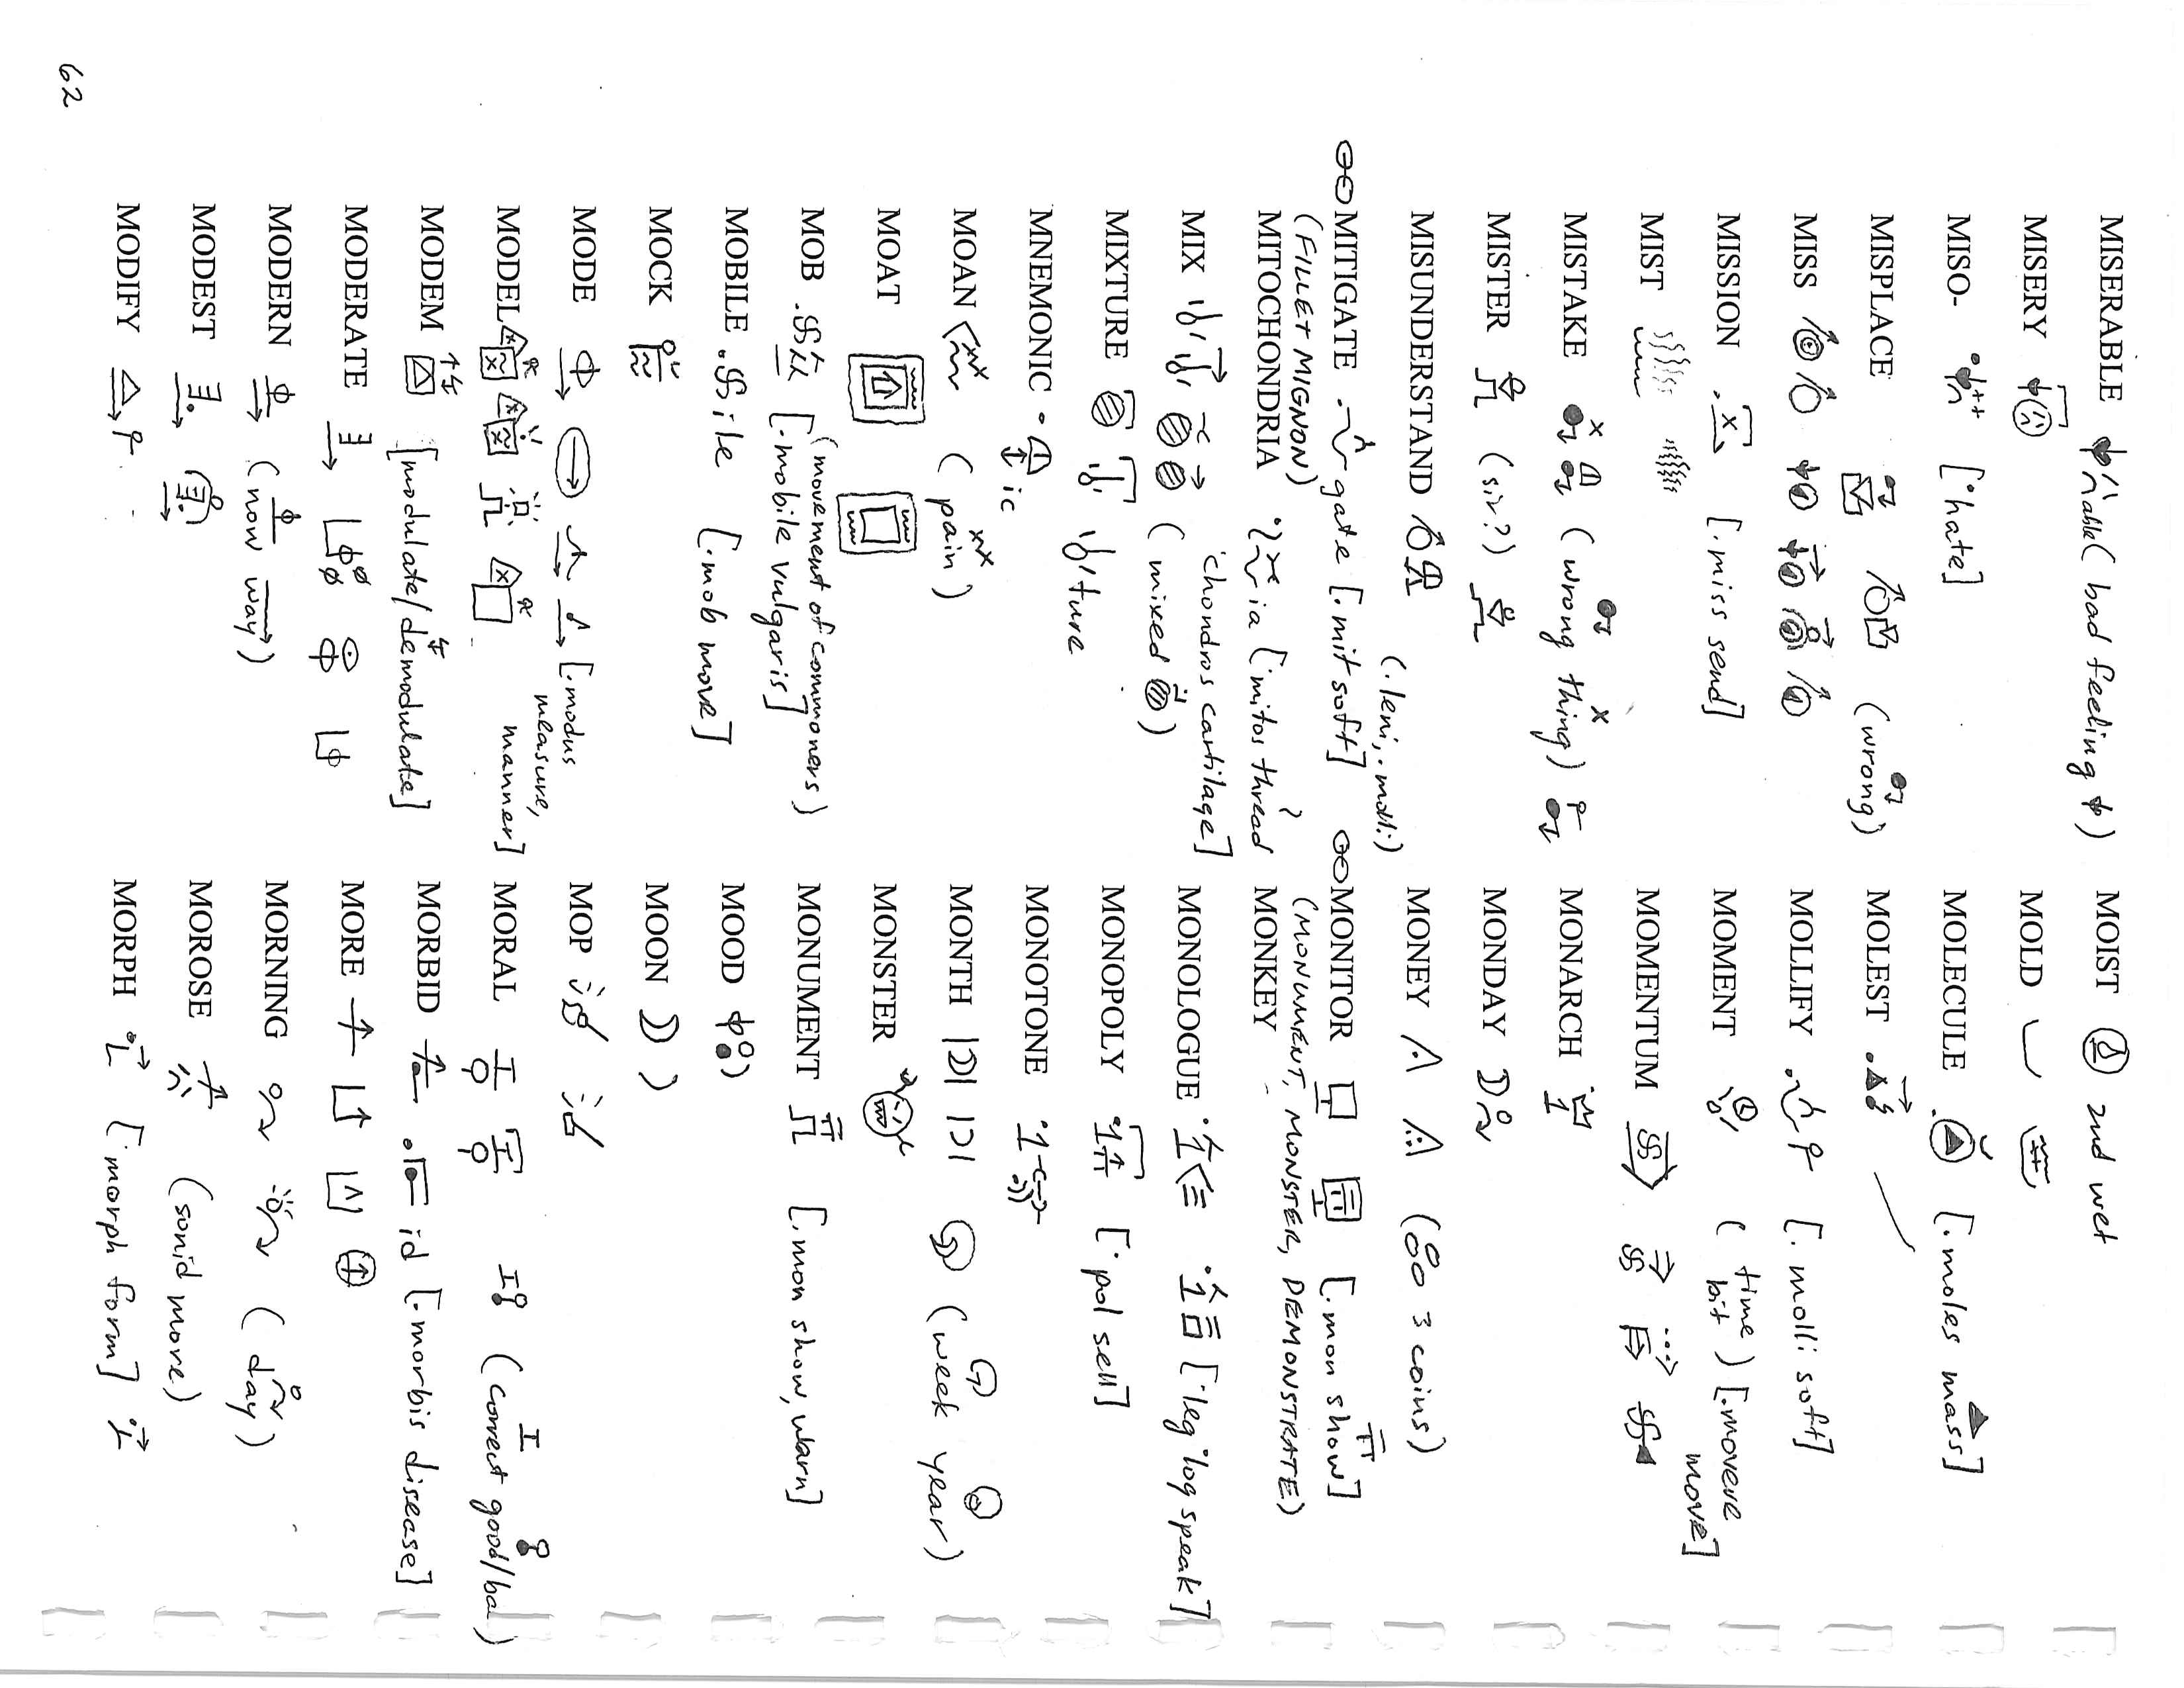 MISERABLE able (bad feeling)
MISERY
MISO- [·hate]
MISPLACE (wrong)
MISS
MISSION [.miss send]
MIST
MISTAKE (wrong thing)
MISTER (sir?)
MISUNDERSTAND
(.leni, .molli)
MITIGATE gate [.mit soft]
(FILLET MIGNON)
MITOCHONDRIA ia [·mitos thread
·chondros cartilage]
MIX (mixed)
MIXTURE ture
MNEMONIC ic
MOAN (pain)
MOAT
(movement of commoners)
MOB [.mobile vulgaris]
MOBILE ile [.mob move]
MOCK
MODE [.modus
measure,
manner]
MODEL
MODEM [modulate/demodulate]
MODERATE
MODERN (now way)
MODEST
MODIFY
MOIST 2nd wet
MOLD
MOLECULE [.moles mass]
MOLEST
MOLLIFY [.molli soft]
MOMENT (time bit) [.movere
move]
MOMENTUM
MONARCH
MONDAY
MONEY (3 coins)
MONITOR [.mon show]
(MONUMENT, MONSTER, DEMONSTRATE)
MONKEY
MONOLOGUE [·leg ·log speak]
MONOPOLY [·pol sell]
MONOTONE
MONTH (week year)
MONSTER
MONUMENT [.mon show, warn]
MOOD
MOON
MOP
MORAL (correct good/bad)
MORBID id [.morbis disease]
MORE
MORNING (day)
MOROSE (sonid more)
MORPH [·morph form]
62